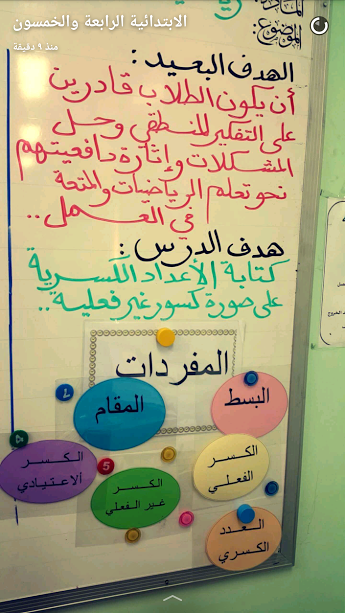 الابتدائية الرابعة والخمسون
منذ ٩ دقيقة
المادة:
الموضوع:
الهدف البعيد:
أن يكون الطلاب قادرين
على التفكير المنطقي وحل
المشكلات وإثارة دافعيتهم
نحو تعلم الرياضيات والمتعة
في العمل..
هدف الدرس:
كتابة الأعداد الكسرية
على صورة كسور غير فعلية..
المفردات
البسط
المقام
الكسر
الفعلي
الكسر
الاعتيادي
الكسر
غير الفعلي
العدد
الكسري